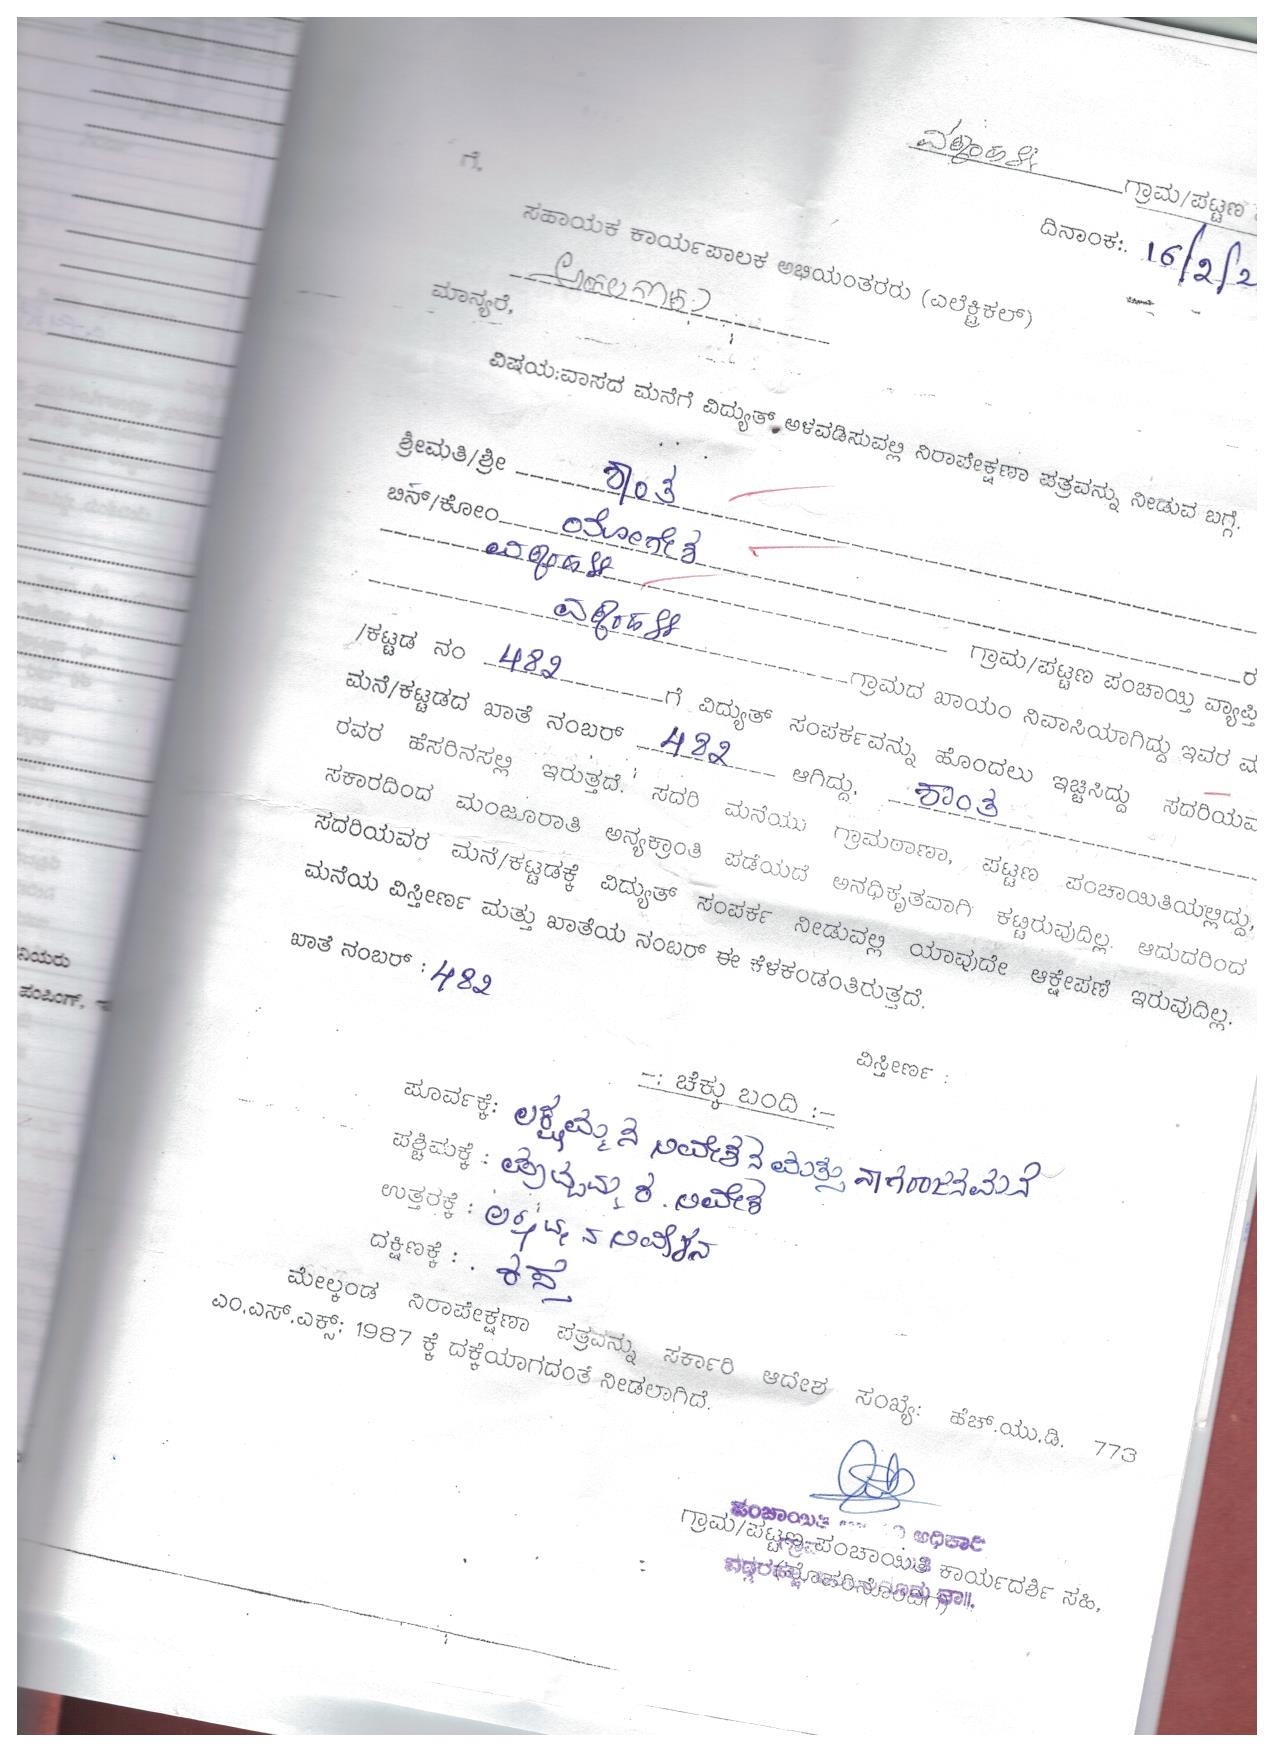 ಗ್ರಾಮ/ಪಟ್ಟಣ
ಗೆ,
ದಿನಾಂಕ: 16/2/2
ಸಹಾಯಕ ಕಾರ್ಯಪಾಲಕ ಅಭಿಯಂತರರು (ಎಲೆಕ್ಟ್ರಿಕಲ್)
ಮಾನ್ಯರೆ,
ವಿಷಯ:ವಾಸದ ಮನೆಗೆ ವಿದ್ಯುತ್ ಅಳವಡಿಸುವಲ್ಲಿ ನಿರಾಪೇಕ್ಷಣಾ ಪತ್ರವನ್ನು ನೀಡುವ ಬಗ್ಗೆ.
ಶ್ರೀಮತಿ/ಶ್ರೀ ಶಾಂತ
ಬಿನ್/ಕೋಂ ಯೋಗೇಶ ರ
ಗ್ರಾಮ/ಪಟ್ಟಣ ಪಂಚಾಯ್ತಿ ವ್ಯಾಪ್ತಿ
ಗ್ರಾಮದ ಖಾಯಂ ನಿವಾಸಿಯಾಗಿದ್ದು ಇವರ ಮ
/ಕಟ್ಟಡ ನಂ 482 ಗೆ ವಿದ್ಯುತ್ ಸಂಪರ್ಕವನ್ನು ಹೊಂದಲು ಇಚ್ಚಿಸಿದ್ದು ಸದರಿಯವ
ಮನೆ/ಕಟ್ಟಡದ ಖಾತೆ ನಂಬರ್ 482 ಆಗಿದ್ದು, ಶಾಂತ
ರವರ ಹೆಸರಿನಸಲ್ಲಿ ಇರುತ್ತದೆ. ಸದರಿ ಮನೆಯು ಗ್ರಾಮಠಾಣಾ, ಪಟ್ಟಣ ಪಂಚಾಯಿತಿಯಲ್ಲಿದ್ದು,
ಸಕಾರದಿಂದ ಮಂಜೂರಾತಿ ಅನ್ಯಕ್ರಾಂತಿ ಪಡೆಯದೆ ಅನಧಿಕೃತವಾಗಿ ಕಟ್ಟಿರುವುದಿಲ್ಲ. ಆದುದರಿಂದ
ಸದರಿಯವರ ಮನೆ/ಕಟ್ಟಡಕ್ಕೆ ವಿದ್ಯುತ್ ಸಂಪರ್ಕ ನೀಡುವಲ್ಲಿ ಯಾವುದೇ ಆಕ್ಷೇಪಣೆ ಇರುವುದಿಲ್ಲ.
ಮನೆಯ ವಿಸ್ತೀರ್ಣ ಮತ್ತು ಖಾತೆಯ ನಂಬರ್ ಈ ಕೆಳಕಂಡಂತಿರುತ್ತದೆ.
ಖಾತೆ ನಂಬರ್ : 482
ವಿಸ್ತೀರ್ಣ :
-: ಚೆಕ್ಕು ಬಂದಿ :-
ಪೂರ್ವಕ್ಕೆ: ಲಕ್ಷ್ಮಮ್ಮನ ನಿವೇಶನ ಮತ್ತು ನಾಗರಾಜನ ಮನೆ
ಪಶ್ಚಿಮಕ್ಕೆ :
ಉತ್ತರಕ್ಕೆ :
ದಕ್ಷಿಣಕ್ಕೆ : ರಸ್ತೆ
ಮೇಲ್ಕಂಡ ನಿರಾಪೇಕ್ಷಣಾ ಪತ್ರವನ್ನು ಸರ್ಕಾರಿ ಆದೇಶ ಸಂಖ್ಯೆ: ಹೆಚ್.ಯು.ಡಿ. 773
ಎಂ.ಎಸ್.ಎಕ್ಸ್: 1987 ಕ್ಕೆ ದಕ್ಕೆಯಾಗದಂತೆ ನೀಡಲಾಗಿದೆ.
ಪಂಚಾಯಿತಿ ಅಧಿಕಾರಿ
ಗ್ರಾಮ/ಪಟ್ಟಣ ಪಂಚಾಯಿತಿ ಕಾರ್ಯದರ್ಶಿ ಸಹಿ,
ನಿಯರು
ಪಂಪಿಂಗ್,